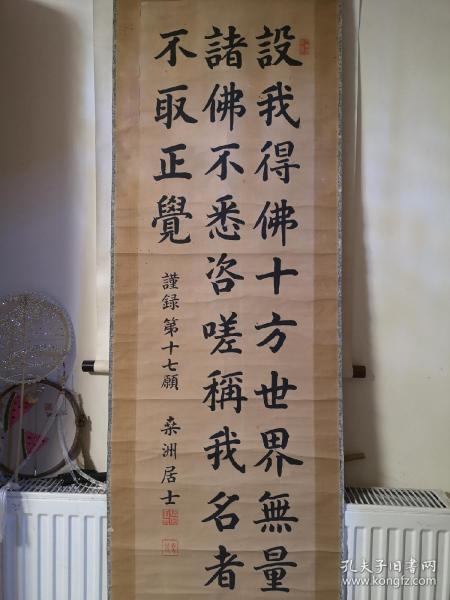 設我得佛十方世界無量
諸佛不悉咨嗟稱我名者
不取正覺
謹録第十七願
桑洲居士
孔夫子旧书网
www.kongfz.com